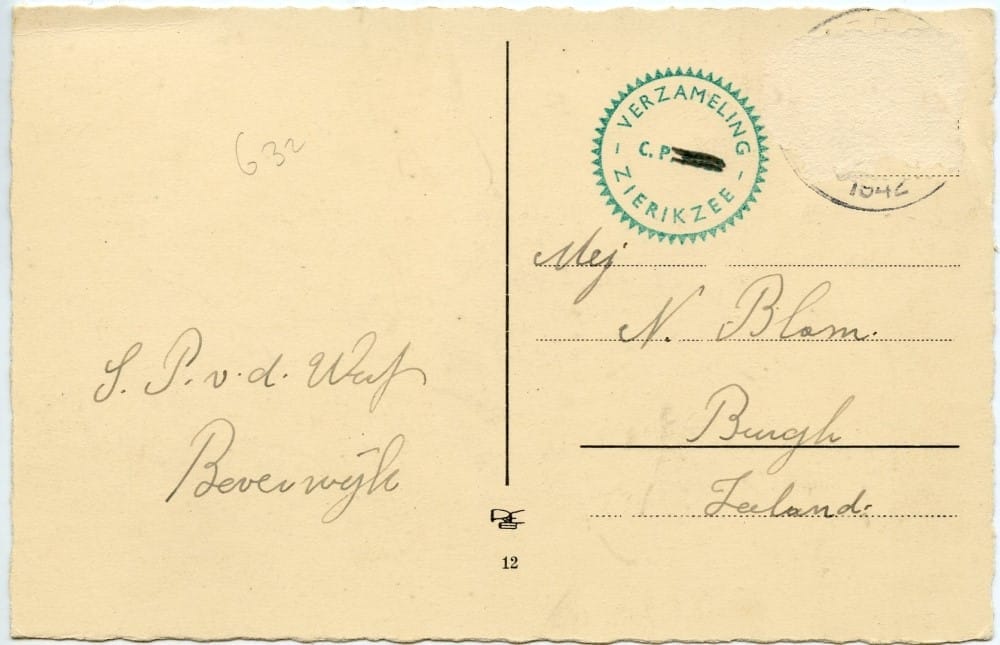 632
VERZAMELING
C. P
- ZIERIKZEE -
1942
Mej
N. Blom.
Burgh
Zeeland.
S. P. v. d. Werf
Beverwijk
12